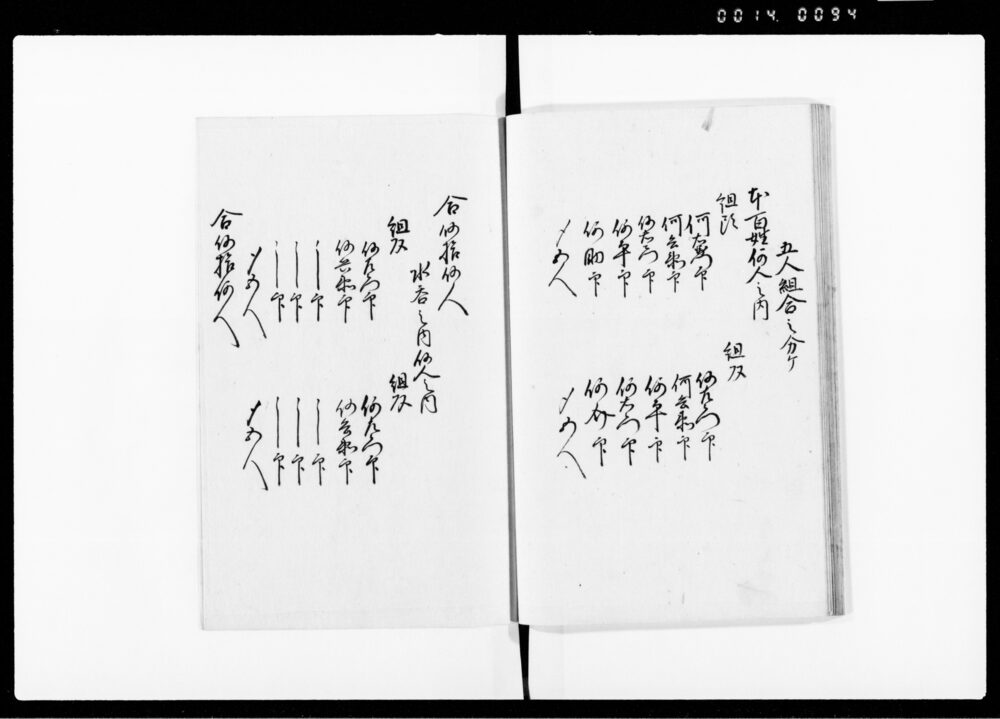 0014 0094
五人組合之分ケ
本百姓何人之内
組頭
何右衛門印
何兵衛印
何左衛門印
何平印
何助印
〆五人
組頭
何左衛門印
何兵衛印
何平印
何右衛門印
何介印
〆五人
合何拾何人
水呑之内何人之内
組頭
何左衛門印
何兵衛印
〡印
〡印
〡印
〆五人
組頭
何左衛門印
何兵衛印
〡印
〡印
〡印
〆五人
合何拾何人